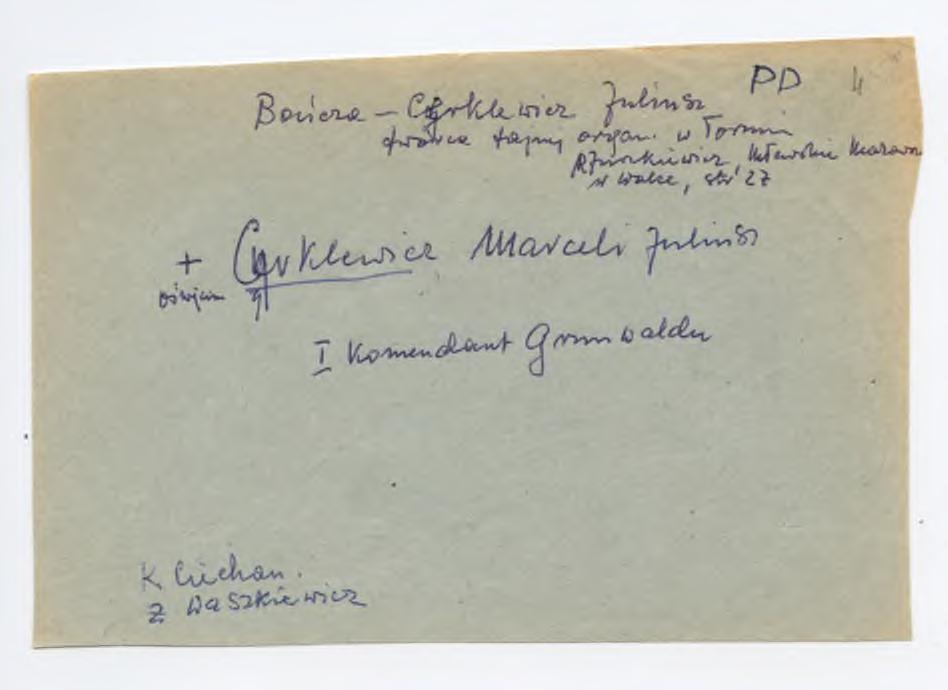 PD 4
Bończa – Cyrklewicz Juliusz
twórca tajnej organ. w Toruniu
R Juszkiewicz, Mławskie Mazowsze
w walce, str 27
+ Cyrklewicz Marceli Juliusz
Oświęcim
I Komendant Grunwaldu
K Ciechan.
Z Waszkiewicz